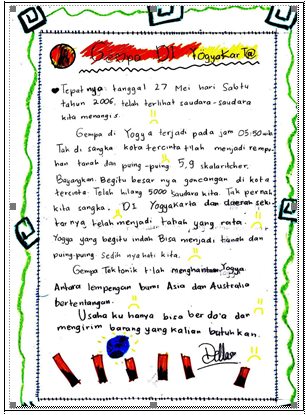 Gempa DI YOgYAKarTa
Tepatnya tanggal 27 Mei hari Sabtu
tahun 2006. telah terlihat saudara-saudara
kita menangis.
Gempa di Yogya terjadi pada jam 05:50 wib
Tak di sangka kota tercinta t'lah menjadi rempu-
han tanah dan puing-puing 5,9 skalaritcher.
Bayangkan. Begitu besar nya goncangan di kota
tercinta. Telah hilang 5000 saudara kita. Tak pernah
kita sangka. DI Yogyakarta dan daerah seki-
tarnya telah menjadi tanah yang rata.
Yogya yang begitu indah Bisa menjadi tanah dan
puing-puing. Sedih nya hati kita.
Gempa Tektonik t'lah menghantam Yogya
Antara lempengan bumi Asia dan Australia
bertentangan.
Usaha ku hanya bisa berdo'a dan
mengirim barang yang kalian butuhkan.